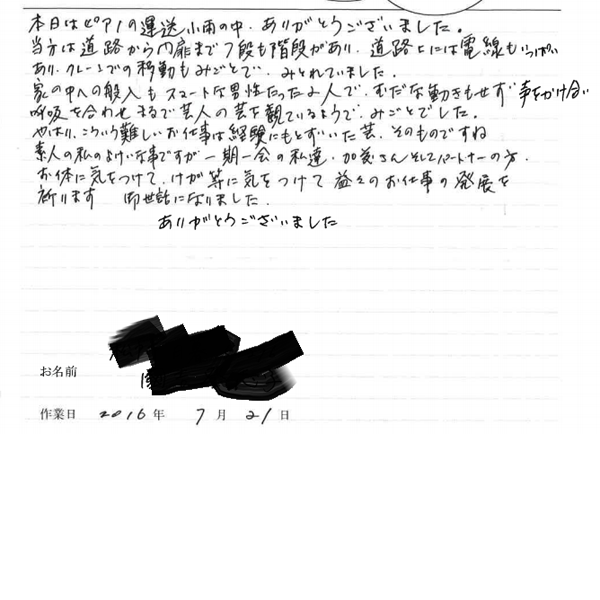 本日はピアノの運送 小雨の中、ありがとうございました。
当方は道路から内扉まで7段も階段があり、道路上には電線もいっぱい
あり、クレーンでの移動もみごとで、みとれていました。
家の中への搬入もスマートな男性たった2人で、むだな動きもせず声をかけ合い
呼吸を合わせまるで芸人の芸を観ているようで、みごとでした。
やはり、こういう難しいお仕事は経験にもとずいた芸、そのものですね
素人の私のよけいな事ですが一期一会の私達、加義さんそしてパートナーの方、
お体に気をつけて、けが等に気をつけて益々のお仕事の発展を
祈ります 御世話になりました。
ありがとうございました
お名前
作業日 2016年 7月 21日